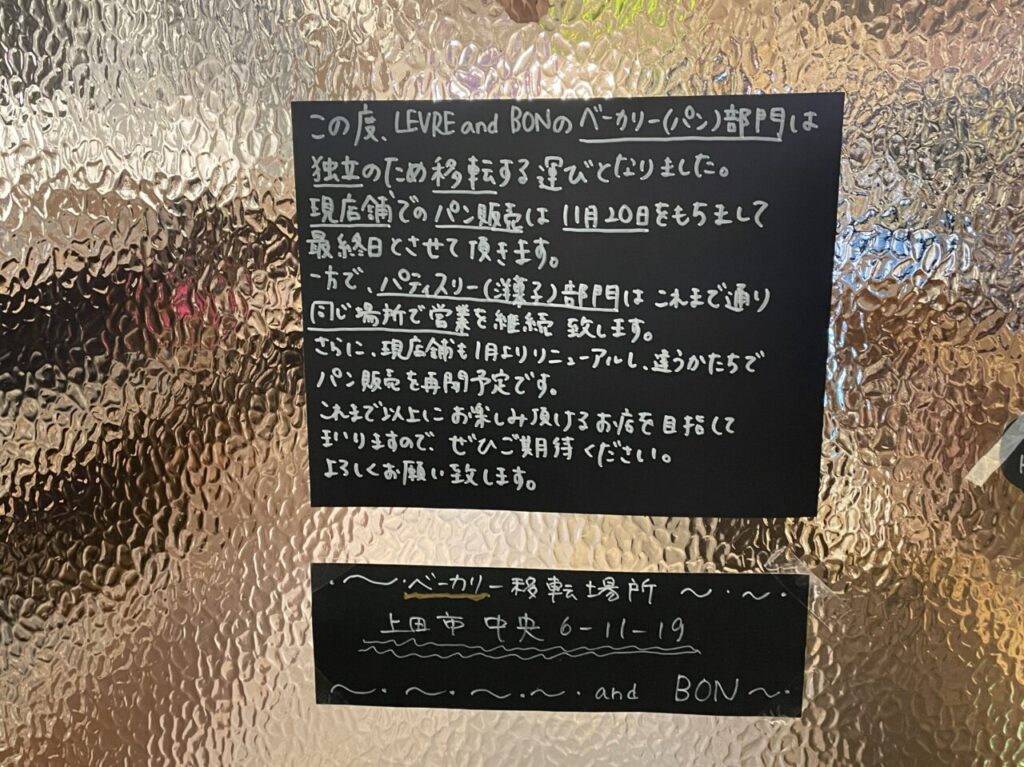 この度、LEVRE and BONのベーカリー(パン)部門は
独立のため移転する運びとなりました。
現店舗でのパン販売は11月20日をもちまして
最終日とさせて頂きます。
一方で、パティスリー(洋菓子)部門はこれまで通り
同じ場所で営業を継続致します。
さらに、現店舗も1月よりリニューアルし、違うかたちで
パン販売を再開予定です。
これまで以上にお楽しみ頂けるお店を目指して
まいりますので、ぜひご期待ください。
よろしくお願い致します。
・〜・ベーカリー移転場所 〜・〜・
上田市 中央 6-11-19
〜・〜・〜・〜・and BON〜・